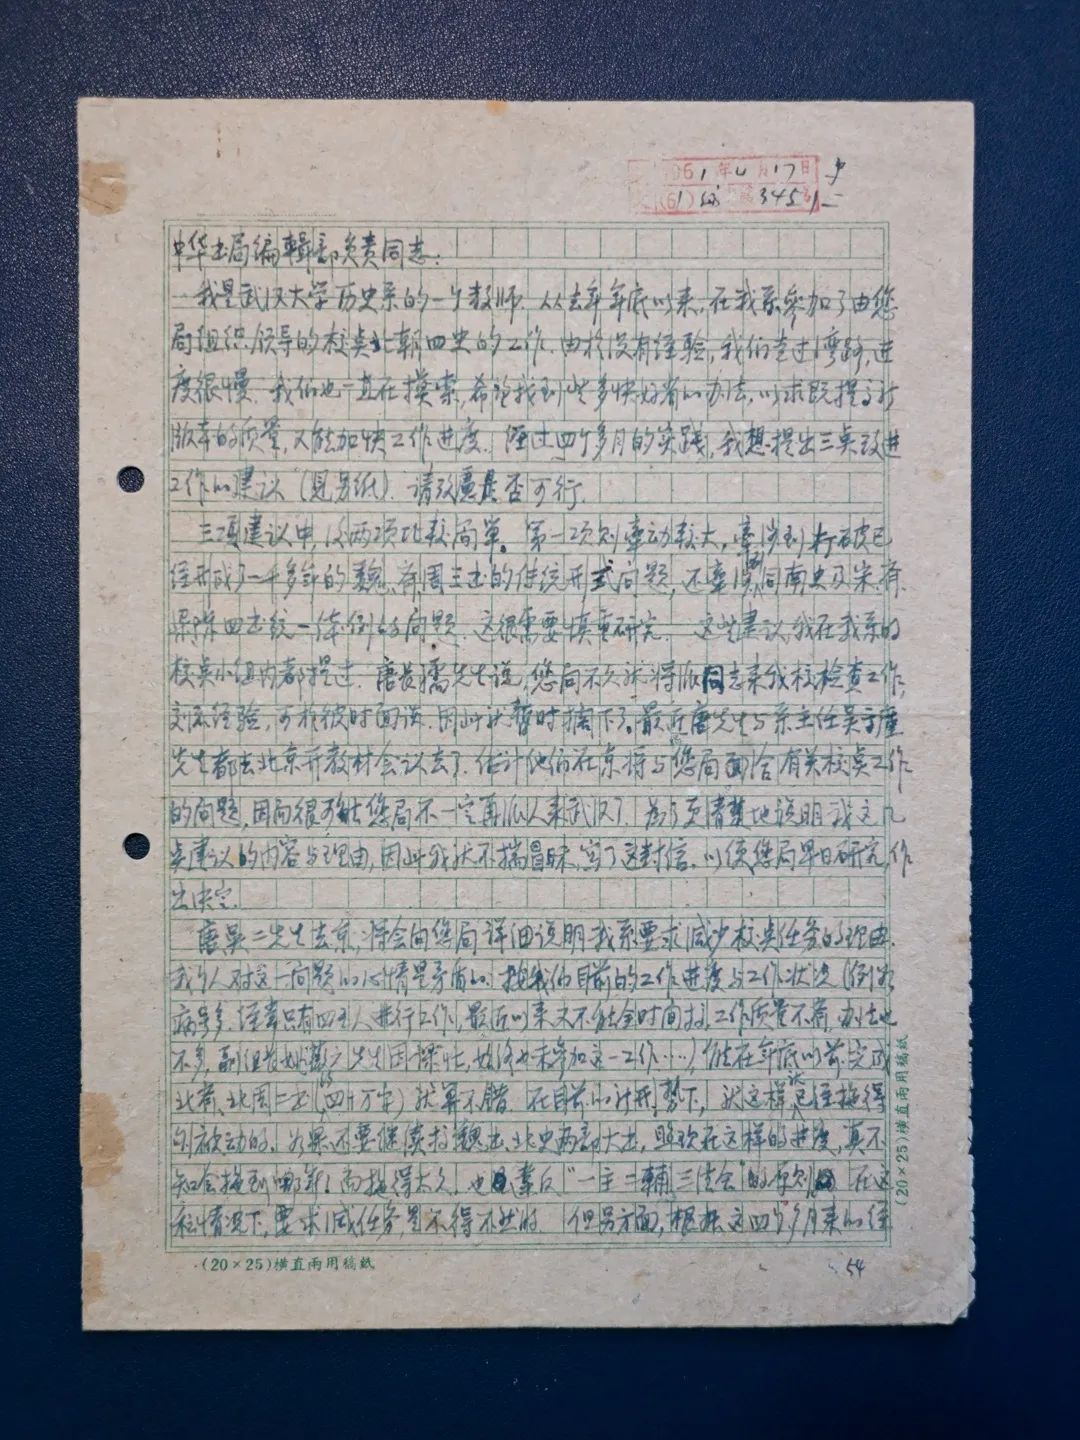 1961年4月17日
(61) 3451
中华书局编辑部负责同志：
我是武汉大学历史系的一个教师，从去年年底以来，在我系参加了由您
局组织领导的校点北朝四史的工作。由於没有经验，我们走过湾路，进
度很慢。我们也一直在摸索，希望找到些多快好省的办法，以求既提高
版本的质量，又能加快工作进度。经过四个多月的实践，我想提出三点改进
工作的建议（见另纸）。请考虑是否可行。
三项建议中，后两项比较简单。第一项则牵动较大，牵涉到打破已
经形成了一千多年的魏、齐、周三书的传统形式问题，还牵涉到同南史及宋、齐、
梁、陈四书统一体例的问题。这很需要慎重研究。这些建议，我在我系的
校点小组内都提过。唐长孺先生说，您局不久就将派同志来我校检查工作，
交流经验，可於彼时面谈。因此就暂时搁下了。最近唐先生与系主任吴于廑
先生都去北京开教材会议去了。估计他们在京将与您局面洽有关校点工作
的问题，因而很可能您局不一定再派人来武汉了。为了更清楚地说明我这几
点建议的内容与理由，因此我就不揣冒昧，写了这封信。以便您局早日研究，作
出决定。
唐吴二先生去京，将会向您局详细说明我系要求减少校点任务的理由。
我个人对这一问题的心情是矛盾的。按我们目前的工作进度与工作状况（例如
病号多，经常只有四五人进行工作，最近以来又不能全时间搞，工作质量不高，办法也
不多，副组长姚薇元先生因课忙，始终也未参加这一工作……）能在年底以前完成
北齐、北周二书（四十万字）就算不错。在目前的形势下，就这样就已经拖得
够被动的。如果还要继续搞魏书、北史两部大书，照现在这样的进度，真不
知会拖到哪年！而拖得太久，也违反“一主二辅三结合”的原则。在这
种情况下，要求减任务是不得不然的。但另方面，根据这四个多月来的经
(20×25)横直兩用稿紙
(20×25)横直兩用稿紙
54